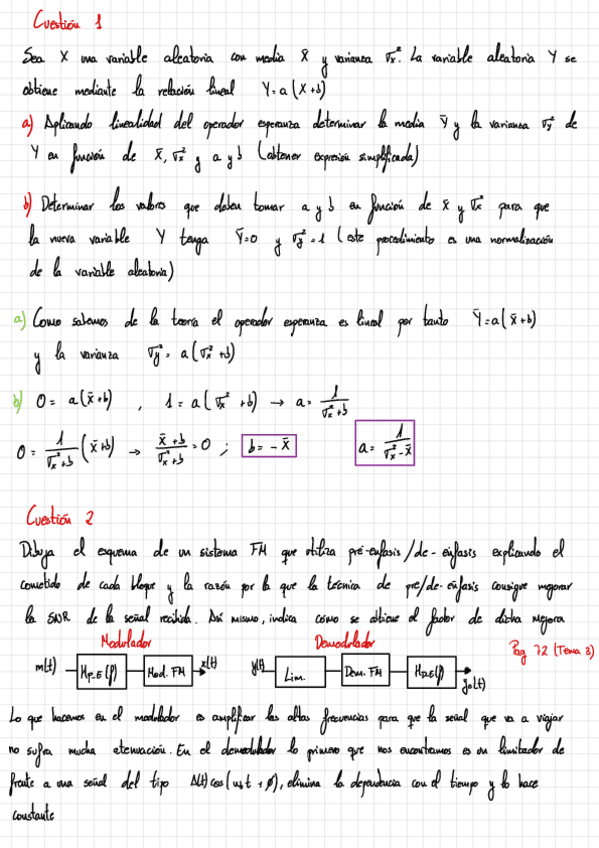 Cuestión 1
Sea X una variable aleatoria con media x̄ y varianza σx². La variable aleatoria Y se
obtiene mediante la relación lineal Y=a(X+b)
a) Aplicando linealidad del operador esperanza determinar la media ȳ y la varianza σy² de
Y en función de x̄, σx² y a y b (obtener expresión simplificada)
b) Determinar los valores que deben tomar a y b en función de x̄ y σx² para que
la nueva variable Y tenga ȳ=0 y σy²=1 (este procedimiento es una normalización
de la variable aleatoria)
a) Como sabemos de la teoría el operador esperanza es lineal por tanto Ȳ=a(x̄+b)
y la varianza σy² = a(σx²+b)
b) 0= a(x̄+b) , 1= a(σx²+b) → a= 1/(σx²+b)
0 = 1/(σx²+b) (x̄+b) → (x̄+b)/(σx²+b) = 0 ; b = -x̄ a = 1/(σx²-x̄)
Cuestión 2
Dibuja el esquema de un sistema FM que utiliza pré-énfasis/de-énfasis explicando el
cometido de cada bloque y la razón por la que la técnica de pre/de-énfasis consigue mejorar
la SNR de la señal recibida. Así mismo, indica cómo se obtiene el factor de dicha mejora
Modulador Demodulador Pag 72 (Tema 3)
m(t) HP.E(f) Mod. FM x(t) y(t) Lim. Dem. FM HD.E(f) yo(t)
Lo que hacemos en el modulador es amplificar las altas frecuencias para que la señal que va a viajar
no sufra mucha atenuación. En el demodulador lo primero que nos encontramos es un limitador de
frente a una señal del tipo A(t)cos(ω₀t+ϕ), elimina la dependencia con el tiempo y lo hace
constante